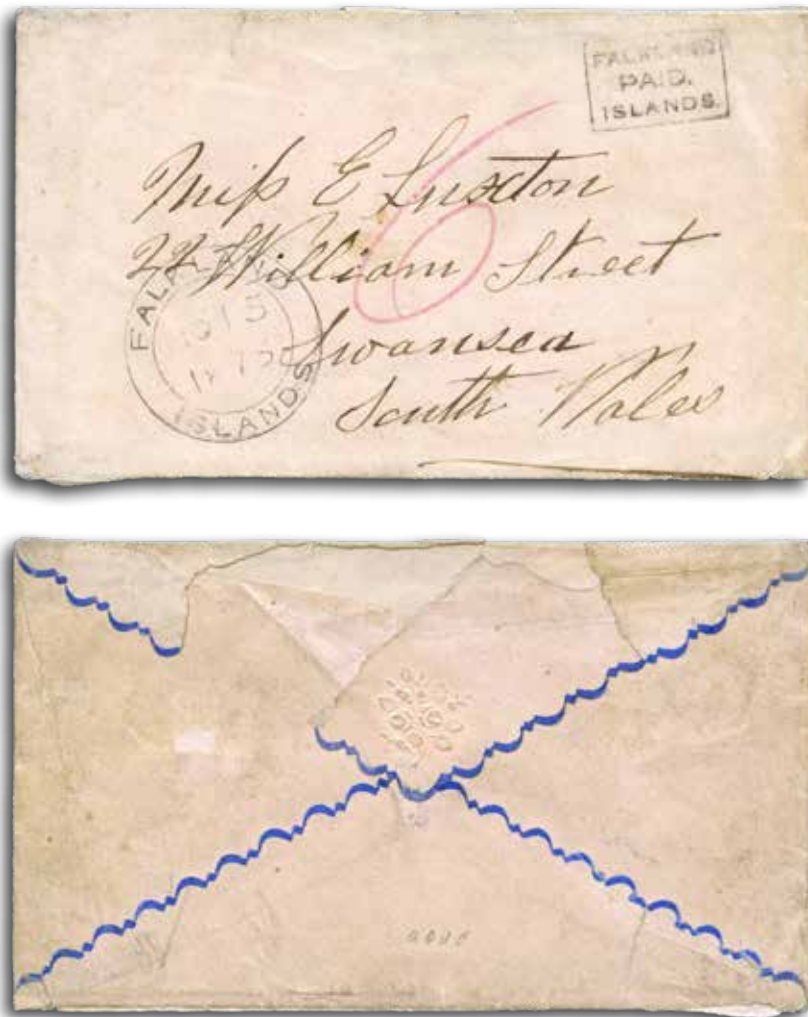 FALKLAND
PAID.
ISLANDS.
Miss E Luxton
22 William Street
Swansea
South Wales
6
ISLANDS